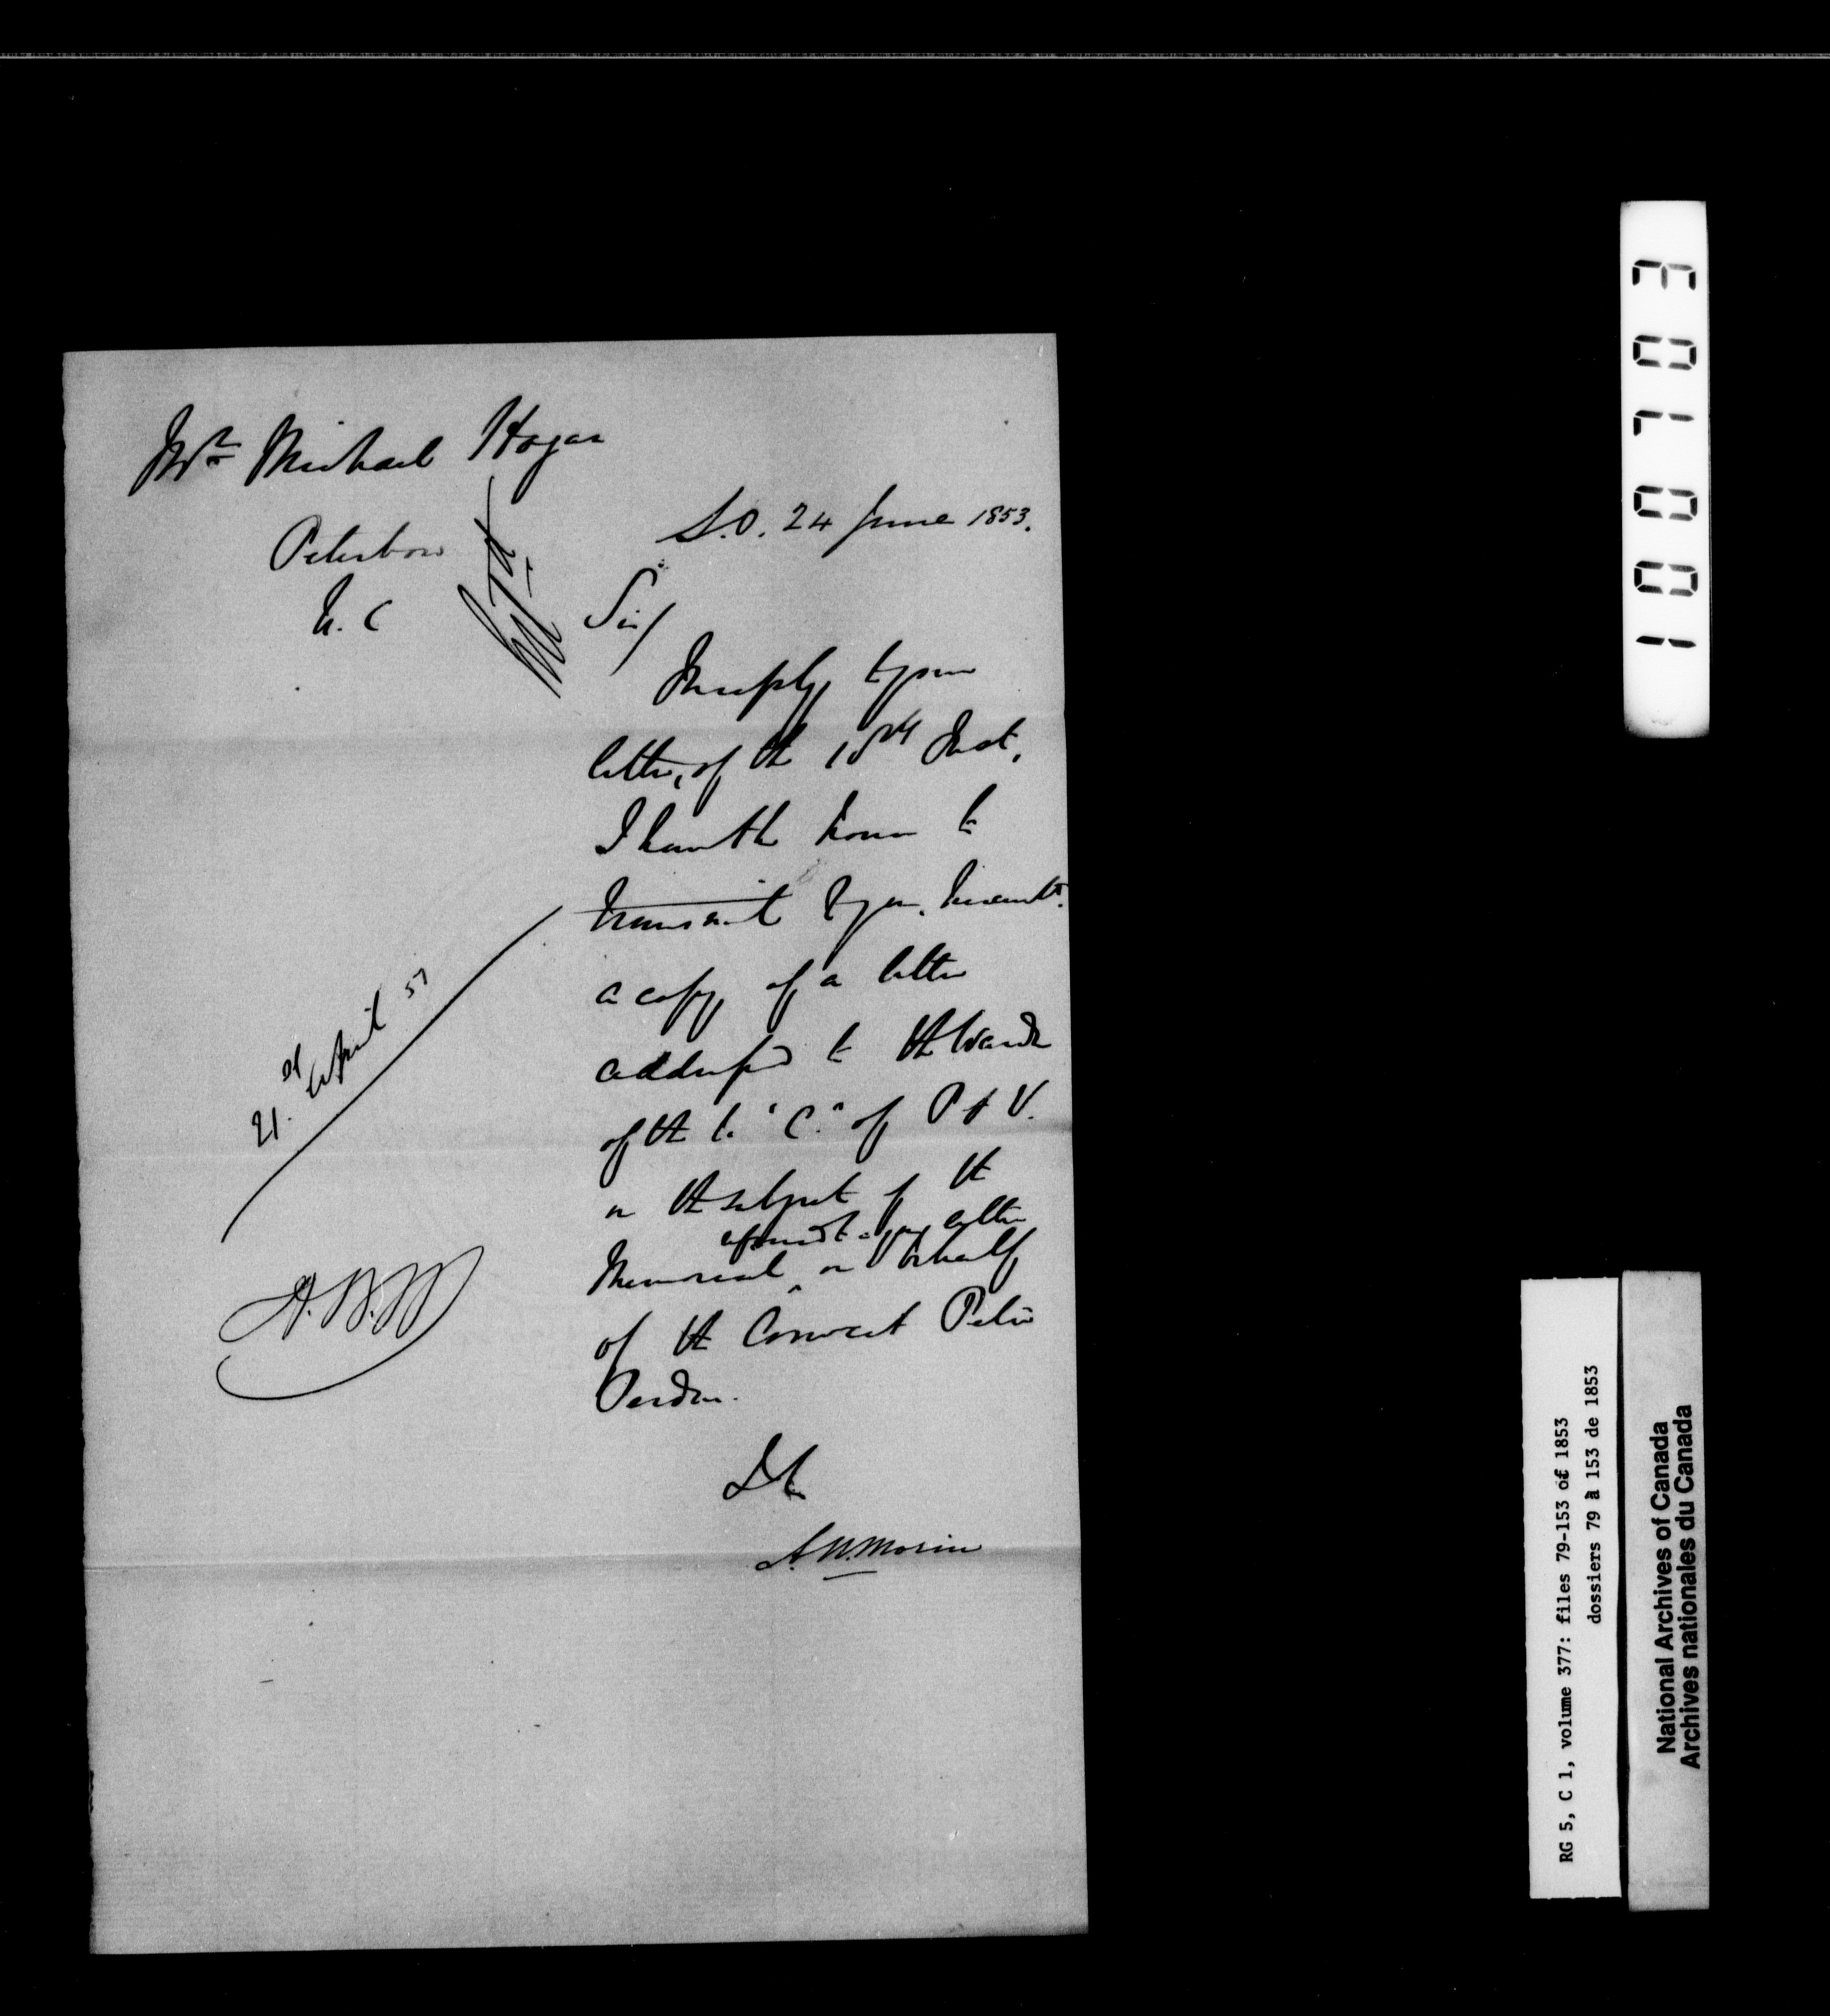 Mr Michael Hogan
Peterboro
U. C
S.O. 24 June 1853.
Sir/
In reply to your
letter, of the 15th Inst,
I have the honor to
transmit to you, herewith
a copy of a letter
addressed to the Warden
of the C. C. of P & V.
on the subject of the
Memorial on behalf
of the Convict Peter
21st April 51
&c
A.N. Morin
1001703
RG 5, C 1, volume 377: files 79-153 of 1853
dossiers 79 à 153 de 1853
National Archives of Canada
Archives nationales du Canada